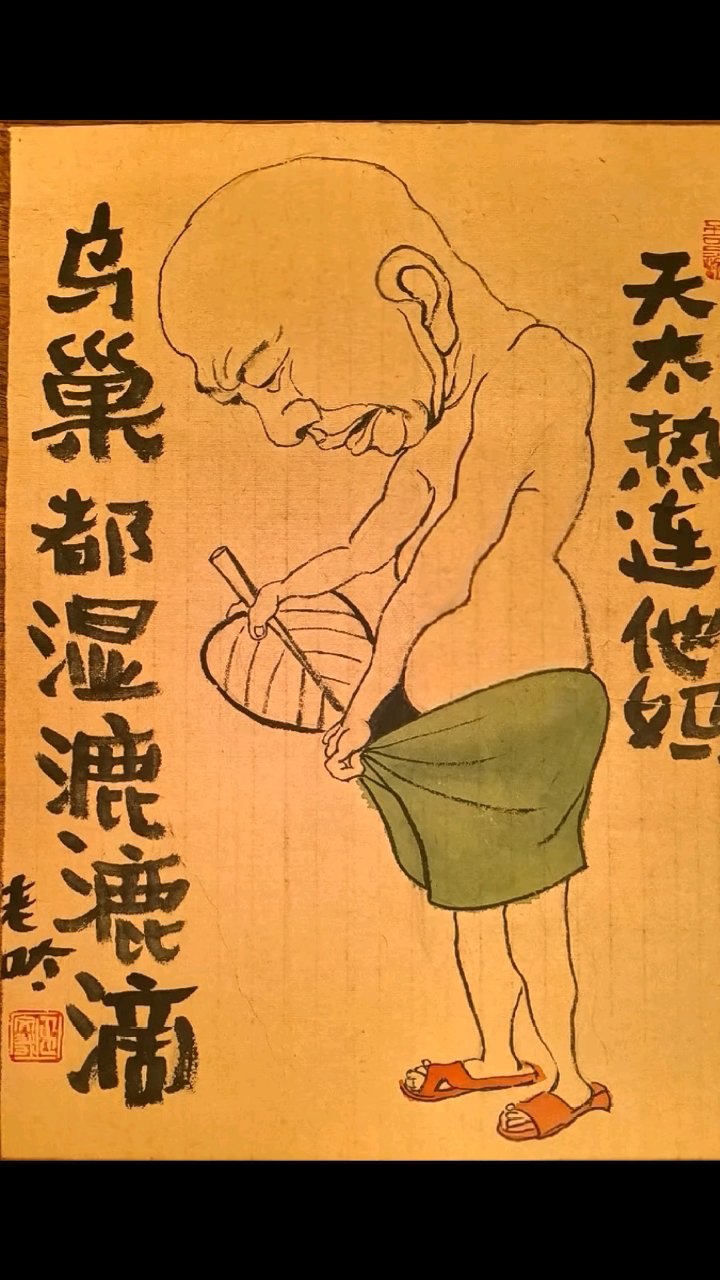 天太热连他妈
鸟巢都湿漉漉滴